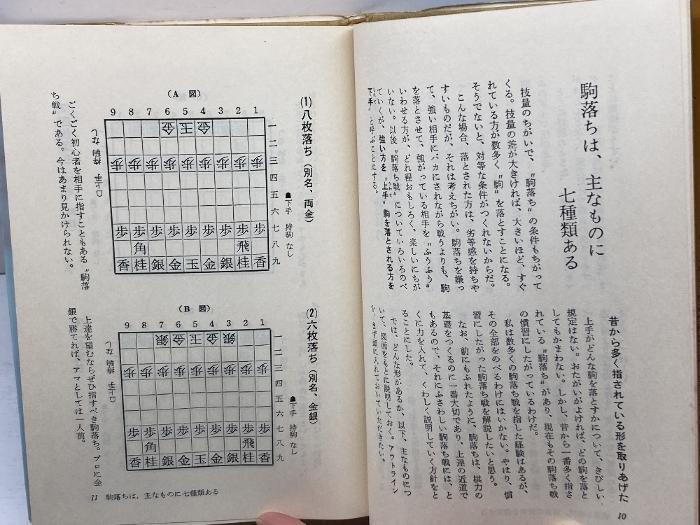 駒落ちは、主なものに
七種類ある
技量のちがいで、〝駒落ち〟の条件もちがって
くる。技量の差が大きければ、大きいほど、すぐ
れている方が数多く〝駒〟を落とすことになる。
そうでないと、対等な条件がつくれないからだ。
こんな場合、落とされた方は、劣等感を持ちや
すいものだが、それは考えちがい。駒落ちを嫌っ
て、強い相手にバカにされながら戦うよりも、駒
を落とさせて、強がっている相手を〝ふうふう〟
いわせる方が、どれ程おもしろく、楽しいにちが
いない。以後〝駒落ち戦〟についていろいろのべ
ていくが、強い方を〝上手〟駒を落とされる方を
下手と呼ぶことにする。
昔から多く指されている形を取りあげた
上手がどんな駒を落とすかについて、きびしい
規定はない。おたがいがよければ、どの駒を落と
してもかまわない。しかし、昔から一番多く指さ
れている〝駒落ち〟があり、現在もその駒落ち戦
の慣習にしたがっているわけだ。
私は数多くの駒落ち戦を指した経験はあるが、
その全部をのべるわけにはいかない。やはり、慣
習にしたがった駒落ち戦を解説したいと思う。
なお、前にもふれたように、駒落ちは、棋力の
基礎をつくるのに一番大切であり、上達の近道で
もあるので、それにふさわしい駒落ち戦には、と
くに力を入れて、くわしく説明していく方針をと
ることにした。
では、どんな形があるか、以下、主なものにつ
いて、図面をもとに説明しておく。アウトライン
10
(1) 八枚落ち(別名、両金)
(A 図)
9 8 7 6 5 4 3 2 1
金 玉 金
歩 歩 歩 歩 歩 歩 歩 歩 歩
歩 歩 歩 歩 歩 歩 歩 歩 歩
角 飛
香 桂 銀 金 玉 金 銀 桂 香
一二三四五六七八九
☗下手 持駒 なし
☖上手 持駒 なし
ごくごく初心者を相手に指すこともある〝駒落
ち戦〟である。今はあまり見かけられない。
(2) 六枚落ち(別名、金銀)
(B 図)
9 8 7 6 5 4 3 2 1
銀 金 玉 金 銀
歩 歩 歩 歩 歩 歩 歩 歩 歩
歩 歩 歩 歩 歩 歩 歩 歩 歩
角 飛
香 桂 銀 金 玉 金 銀 桂 香
一二三四五六七八九
☗下手 持駒 なし
☖上手 持駒 なし
上達を望むならぜひ指すべき駒落ち。プロに金
銀で勝てれば、アマとしては一人前。
11 駒落ちは、主なものに七種類ある